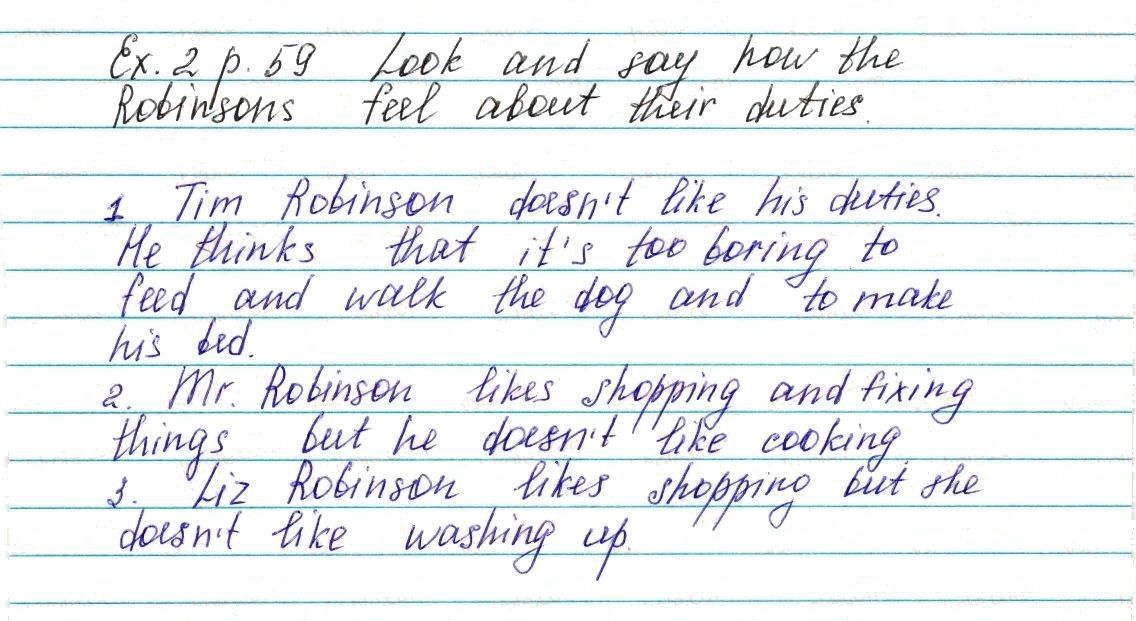 Ex. 2 p. 59 Look and say how the
Robinsons feel about their duties.
1. Tim Robinson doesn't like his duties.
He thinks that it's too boring to
feed and walk the dog and to make
his bed.
2. Mr. Robinson likes shopping and fixing
things but he doesn't like cooking.
3. Liz Robinson likes shopping but she
doesn't like washing up.